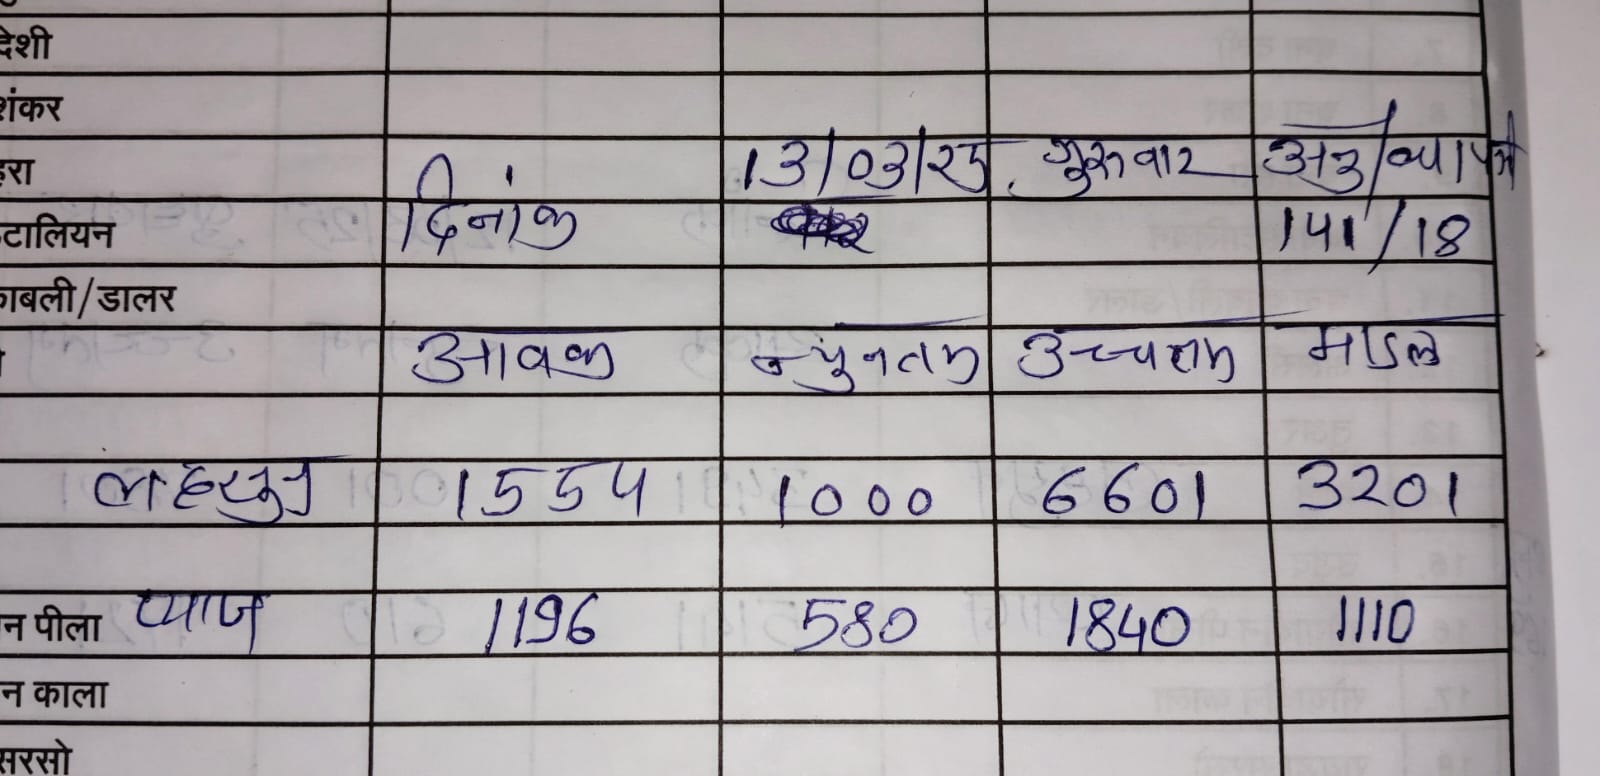 देशी
शंकर
हरा दिनांक 13/03/25 गुरुवार अनु/व्यापारी
टालियन 141/18
काबली/डालर
आवक न्युनतम उच्चतम माडल
लहसुन 1554 1000 6601 3201
न पीला प्याज 1196 580 1840 1110
न काला
सरसो